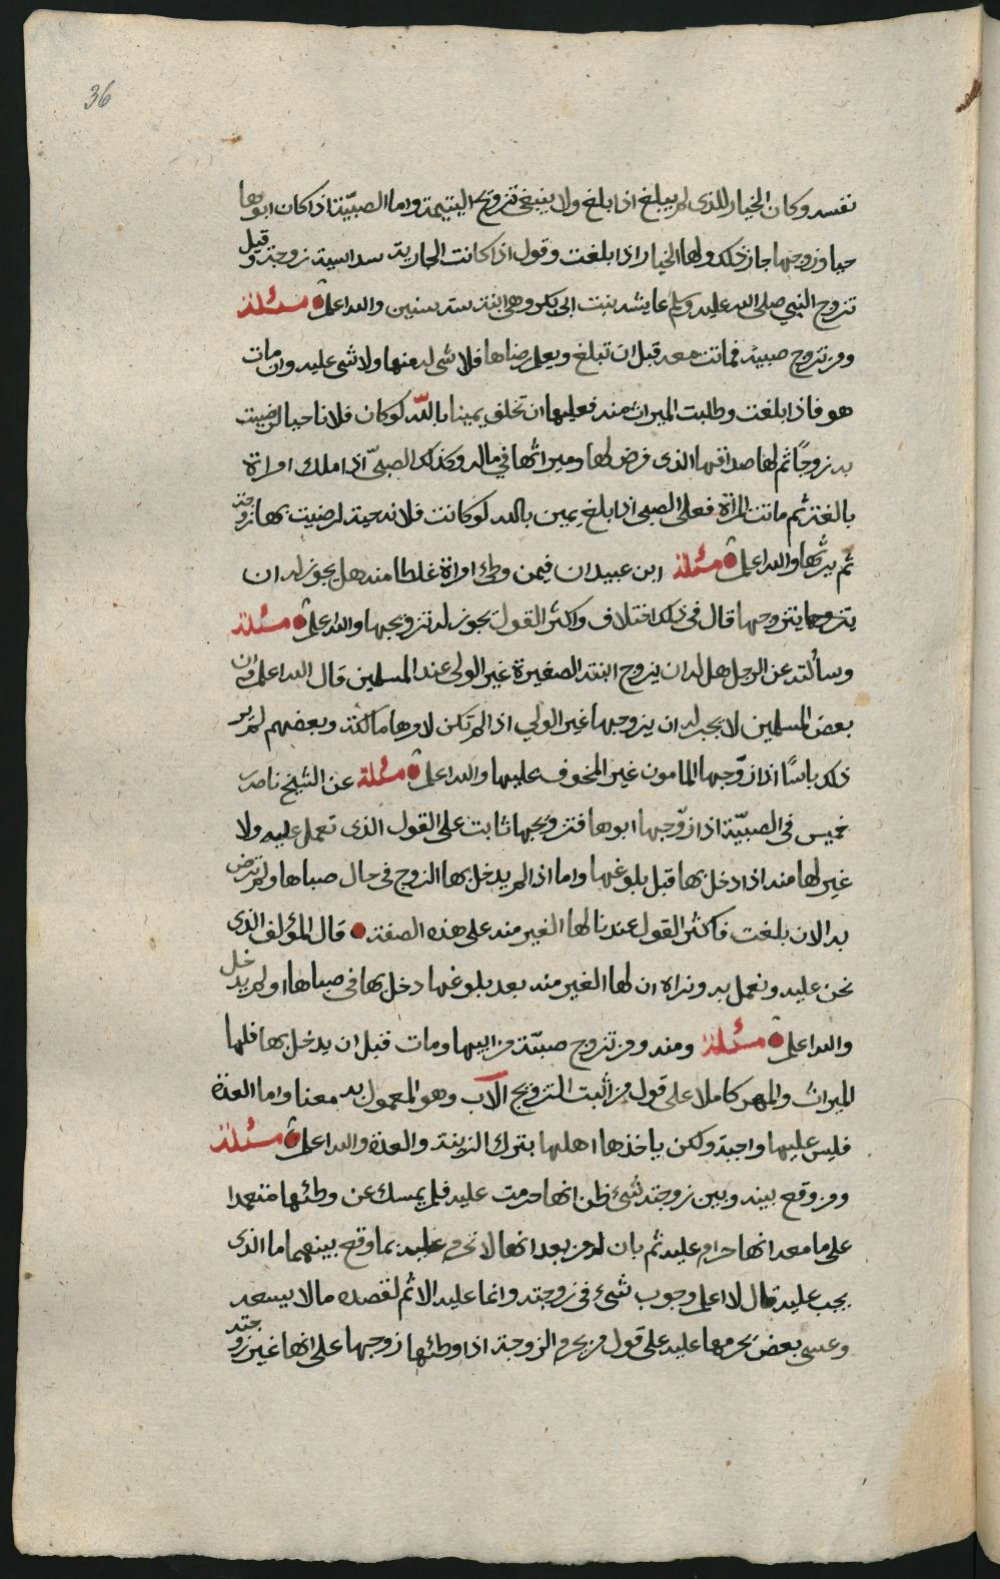 36
نفسه وكان الخيار للذى لم يبلغ اذا بلغ ولا ينبغي تزويج اليتيمة واما الصبيّة اذا كان ابوها
حيا وزوجها جاز ذلك ولها الخيار اذا بلغت وقول اذا كانت الجارية سداسية زوجة وقيل
تزوج النبي صلى الله عليه وسلم عايشه بنت ابى بكر وهى ابنة ستة سنين والله اعلم مسئلة
ومن تزوج صبية فماتت معه قبل ان تبلغ ويعلم رضاها فلا شى له منها ولا شى عليه وان مات
هو فاذا بلغت وطلبت الميراث منه فعليها ان تحلف يمينا بالله لو كان فلانا حيا لرضيت
به زوجًا ثم لها صداقها الذى فرض لها وميراثها في ماله وكذلك الصبيّ اذا ملك امراة
بالغة ثم ماتت المراة فعلى الصبى اذا بلغ يمين بالله لو كانت فلانه حية لرضيت بها زوجة
ثم يرثها والله اعلم مسئلة ابن عبيدان فيمن وطئ امراة غلطا منه هل يجوز له ان
يتزوجها يتزوجها قال في ذلك اختلاف واكثر القول يجوز له تزويجها والله اعلم مسئلة
وسألته عن الرجل هل له ان يزوج ابنته الصغيرة غير الولى عند المسلمين قال الله اعلم وان
بعض المسلمين لا يجب له ان يزوجها غير الولي اذا لم تكن لامرها مالكة وبعضهم لم ير
ذلك باسًا اذا زوّجها المامون غير المخوف عليها والله اعلم مسئلة عن الشيخ ناصر
خميس في الصبيّة اذا زوّجها ابوها فتزويجها ثابت على القول الذى تعمل عليه ولا
غير لها منه اذا دخل بها قبل بلوغها واما اذا لم يدخل بها الزوج في حال صباها ولم ترض
به الان بلغت فاكثر القول عندنا لها الغير منه على هذه الصفة قال المؤلف الذى
نحن عليه ونعمل به ونراه ان لها الغير منه بعد بلوغها دخل بها في صباها او لم يدخل
والله اعلم مسئلة ومنه ومن تزوج صبيّة من ابيها ومات قبل ان يدخل بها فلها
الميراث والمهر كاملا على قول من اثبت التزويج الآب وهو المعمول به معنا واما العدة
فليس عليها واجبة ولكن ياخذها اهلها بترك الزينة والعدة والله اعلم مسئلة
ومن وقع بينه وبين زوجته شئ ظن انها حرمت عليه فلم يمسك عن وطئها متعمدا
على ما معه انها حرام عليه ثم بان له من بعد انها لا تحرم عليه بما وقع بينهما ما الذى
يجب عليه قال لا اعلم وجوب شئ في زوجته وانما عليه الاثم لقصده ما لا يسعه
وعسى بعض يحرمها عليه على قول من يحرم الزوجة اذا وطئها زوجها على انها غير زوجته